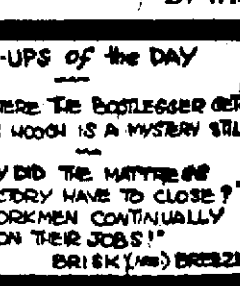 -UPS of the DAY
ERE THE BOOTLEGGER GET
HOOCH IS A MYSTERY STIL
Y DID THE MATTRESS
CTORY HAVE TO CLOSE?"
ORKMEN CONTINUALLY
ON THEIR JOBS!"
BRISK (AND) BREEZ